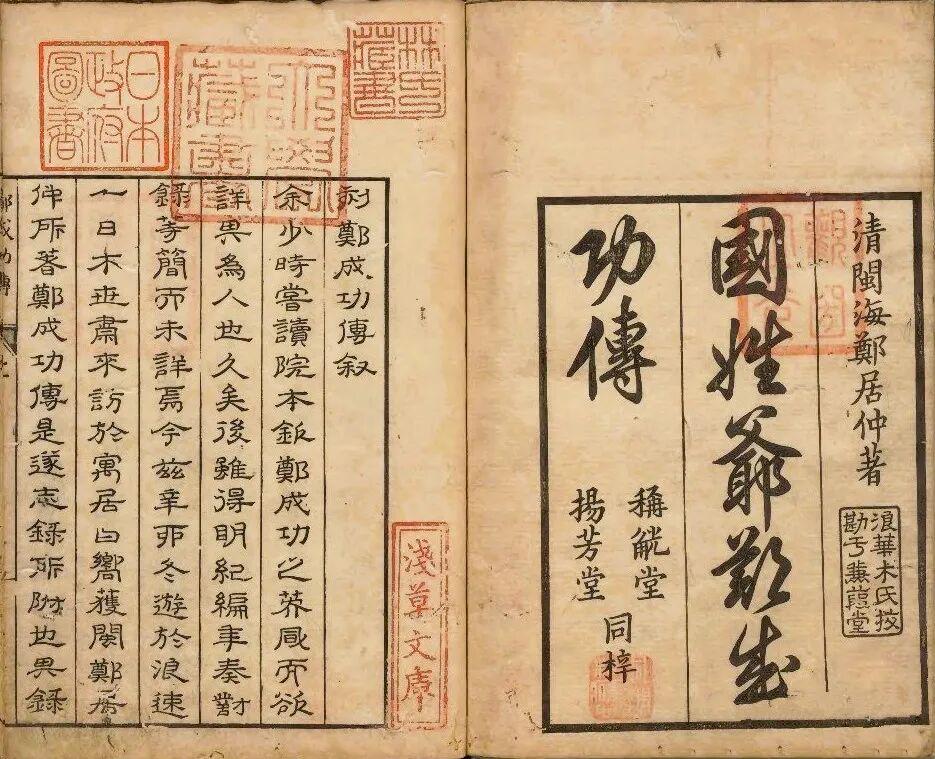 清閩海鄭居仲著
浪華木氏挍
勘于蒹葭堂
國姓爺鄭成
功傳
稱觥堂
揚芳堂
同梓
林氏藏書
日本政府圖書
淺草文庫
刻鄭成功傳叙
余少時嘗讀院本鄭成功之而欲
詳其為人也久矣後雖得明紀編年奏對
錄等簡而未詳焉今茲辛卯冬遊於浪速
一日木世肅來訪於寓居曰嚮獲閩鄭居
仲所著鄭成功傳是遂志錄所附也其錄
鄭成功傳